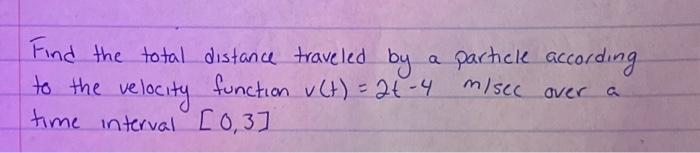 Find the total distance traveled by a particle according
to the velocity function v(t) = 2t-4 m/sec over a
time interval [0,3]